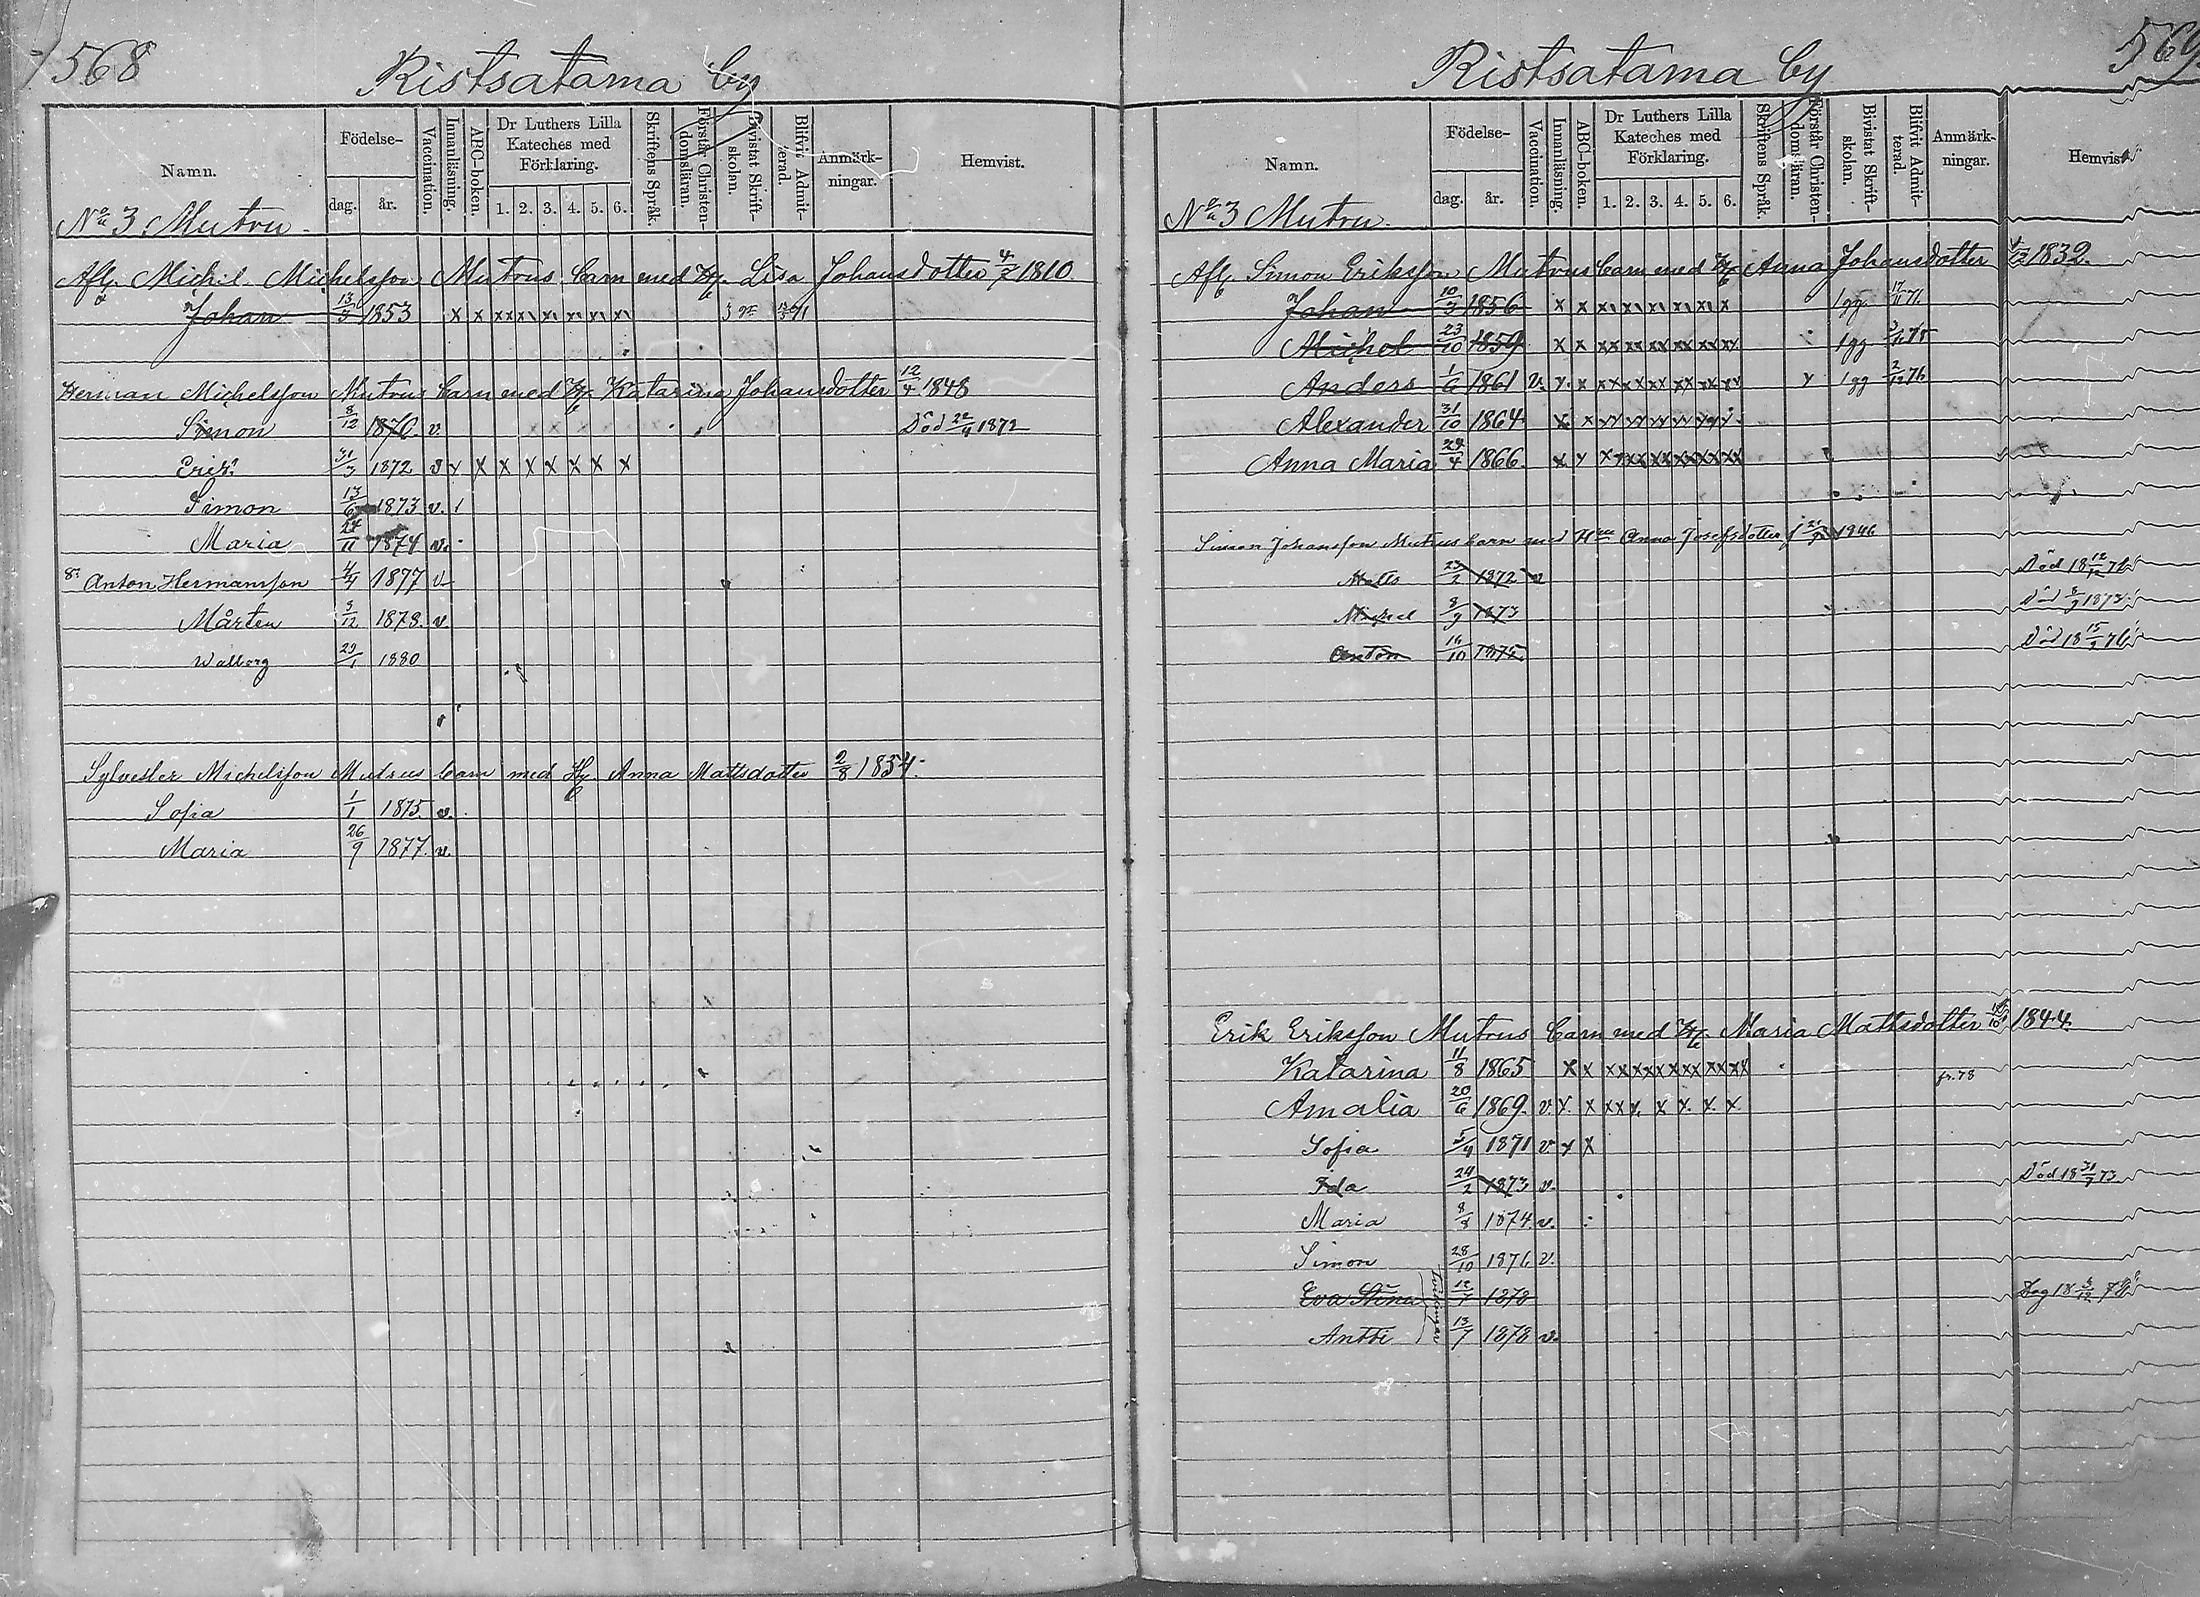 568
Ristsatama by
Namn.
Födelse-
dag. år.
Vaccination.
Innanläsning.
ABC-boken.
Dr Luthers Lilla Kateches med Förklaring.
1. 2. 3. 4. 5. 6.
Skriftens Språk.
Förstår Christen-domsläran.
Bivistat Skrift-skolan.
Blifvit Admit-terad.
Anmärk-ningar.
Hemvist.
No 3 Mutru.
Afl. Michel Michelsson Mutrus barn med H. Lisa Johansdotter 4/7 1810
Johan 13/3 1853 x x xx x x x x x
Herman Michelsson Mutrus barn med H. Katarina Johansdotter 12/4 1848
Simon 8/12 1870. v. Död 22/4 1872
Erik 31/3 1872 v x x x x x x x x
Simon 13/6 1873 v.
Maria 24/11 1874 v.
Anton Hermansson 4/4 1877 v
Mårten 9/12 1878. v
Walborg 29/1 1880
Sylvester Michelsson Mutrus barn med H. Anna Mattsdotter 2/8 1834.
Sofia 1/1 1875. v.
Maria 26/9 1877. v.
569
Ristsatama by
Namn.
Födelse-
dag. år.
Vaccination.
Innanläsning.
ABC-boken.
Dr Luthers Lilla Kateches med Förklaring.
1. 2. 3. 4. 5. 6.
Skriftens Språk.
Förstår Christen-domsläran.
Bivistat Skrift-skolan.
Blifvit Admit-terad.
Anmärk-ningar.
Hemvist.
No 3 Mutru.
Afl. Simon Eriksson Mutrus barn med H. Anna Johansdotter 1832.
Johan 10/3 1856 x x x x x x x x 1 gg. 17/11 71.
Michel 23/10 1859 x x xx xx xx xx xx xx 1 gg 75
Anders 1/6 1861 v. x x xx xx xx xx xx xx 1 gg 2/12 76
Alexander 31/10 1864 x x
Anna Maria 4 1866. x x
Simon Johansson Mutrus barn med Anna Josefsdotter 1846
Matts 23/2 1872 v Död 18 12/12 72
Michel 8/9 1873 Död 8/9 1873
Anton 16/10 1875. Död 18 15/ 76
Erik Eriksson Mutrus barn med H. Maria Mattsdotter 1844.
Katarina 11/8 1865 x x xx xx xx xx xx xx fr. 78
Amalia 20/6 1869. v. x. x xx x. x x. x. x.
Sofia 5/4 1871 v x x
Ida 24/2 1873 v. Död 18 31/7 73
Maria 8/8 1874. v.
Simon 28/10 1876 v.
Eva Stina 12/7 1878
Tvillingar
Antti 13/7 1878 v.